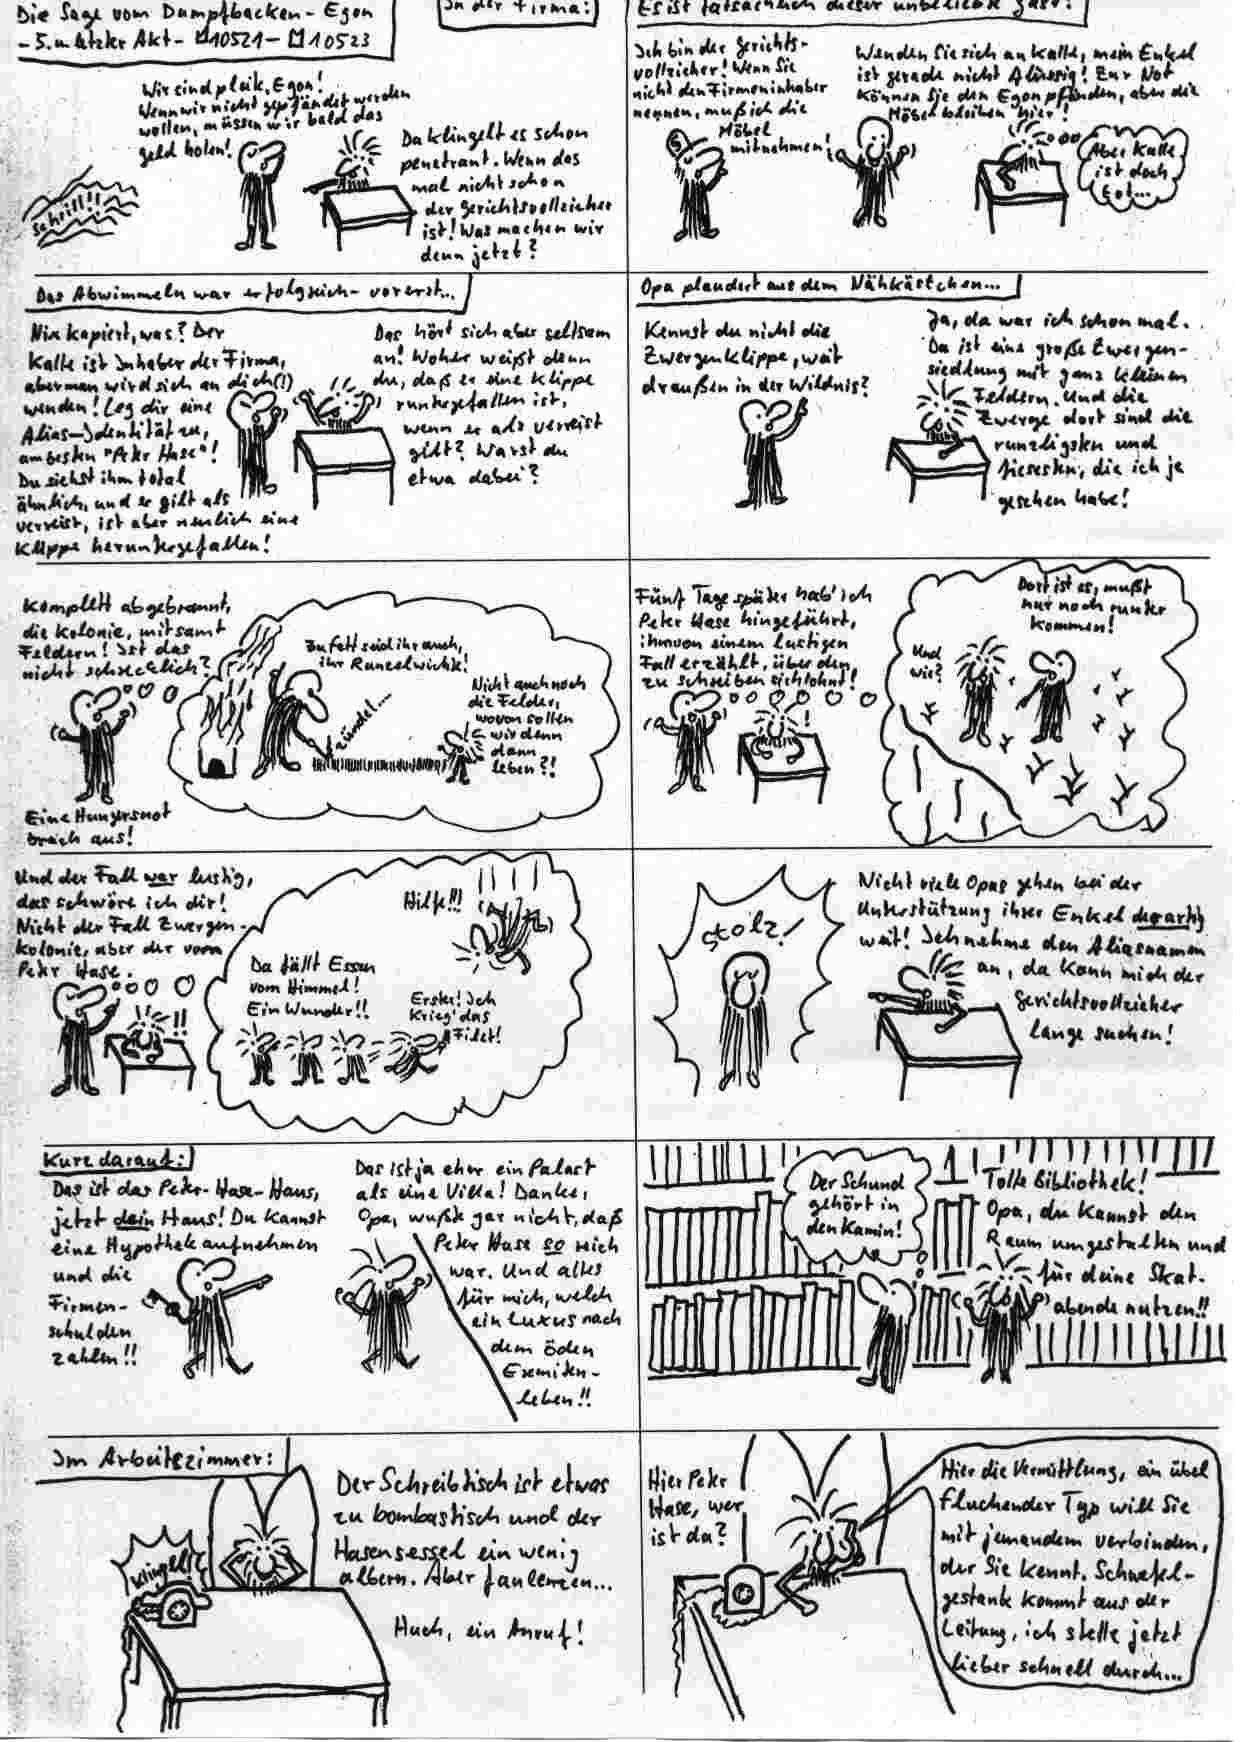 Die Sage vom Dampfbacken-Egon
-5. u. letzter Akt- 10521- 10523
In der Firma:
Wir sind pleite, Egon!
Wenn wir nicht gepfändet werden
wollen, müssen wir bald das
geld holen!
Schrill!!
Da klingelt es schon
penetrant. Wenn das
mal nicht schon
der gerichtsvollzieher
ist! Was machen wir
denn jetzt?
Es ist tatsächlich dieser unbeliebte gast:
Ich bin der gerichts-
vollzieher! Wenn Sie
nicht den Firmeninhaber
nennen, muß ich die
Möbel
mitnehmen!
Wenden Sie sich an Kalle, mein Enkel
ist gerade nicht flüssig! Zur Not
können Sie den Egon pfänden, aber die
Möbel bleiben hier!
Aber Kalle
ist doch
tot...
Das Abwimmeln war erfolgreich- vorerst...
Nix kapiert, was? Der
Kalle ist Inhaber der Firma,
aber man wird sich an dich(!)
wenden! Leg dir eine
Alias-Identität zu,
am besten "Peter Hase"!
Du siehst ihm total
ähnlich, und er gilt als
verreist, ist aber neulich eine
Klippe heruntergefallen!
Das hört sich aber seltsam
an! Woher weißt denn
du, daß er eine Klippe
runtergefallen ist,
wenn er als verreist
gilt? Warst du
etwa dabei?
Opa plaudert aus dem Nähkästchen...
Kennst du nicht die
Zwergenklippe, weit
draußen in der Wildnis?
Ja, da war ich schon mal.
Da ist eine große Zwergen-
siedlung mit ganz kleinen
Feldern. Und die
Zwerge dort sind die
runzligsten und
fiesesten, die ich je
gesehen habe!
Komplett abgebrannt,
die Kolonie, mitsamt
Feldern! Ist das
nicht schrecklich?
Zu fett seid ihr auch,
ihr Runzelwichte!
zündel...
Nicht auch noch
die Felder,
wovon sollen
wir denn
dann
leben?!
Eine Hungersnot
brach aus!
Fünf Tage später hab' ich
Peter Hase hingeführt,
ihm von einem lustigen
Fall erzählt, über den
zu schreiben sich lohnt!
Und
wie?
Dort ist es, mußt
nur noch runter
kommen!
Und der Fall war lustig,
das schwöre ich dir!
Nicht der Fall Zwergen-
kolonie, aber der vom
Peter Hase.
Hilfe!!!
Da fällt Essen
vom Himmel!
Ein Wunder!!
Erster! Ich
krieg' das
Filet!
Stolz!
Nicht viele Opas gehen bei der
Unterstützung ihrer Enkel derartig
weit! Ich nehme den Aliasnamen
an, da kann mich der
gerichtsvollzieher
lange suchen!
Kurz darauf:
Das ist das Peter-Hase-Haus,
jetzt dein Haus! Du kannst
eine Hypothek aufnehmen
und die
Firmen-
schulden
zahlen!!
Das ist ja eher ein Palast
als eine Villa! Danke,
Opa, wußte gar nicht, daß
Peter Hase so reich
war. Und alles
für mich, welch
ein Luxus nach
dem öden
Eremiten-
leben!!
Der Schund
gehört in
den Kamin!
Tolle Bibliothek!
Opa, du kannst den
Raum umgestalten und
für deine Skat-
abende nutzen!!
Im Arbeitszimmer:
Klingel!
Der Schreibtisch ist etwas
zu bombastisch und der
Hasensessel ein wenig
albern. Aber faulenzen...
Huch, ein Anruf!
Hier Peter
Hase, wer
ist da?
Hier die Vermittlung, ein übel
fluchender Typ will Sie
mit jemandem verbinden,
der Sie kennt. Schwefel-
gestank kommt aus der
Leitung, ich stelle jetzt
lieber schnell durch...